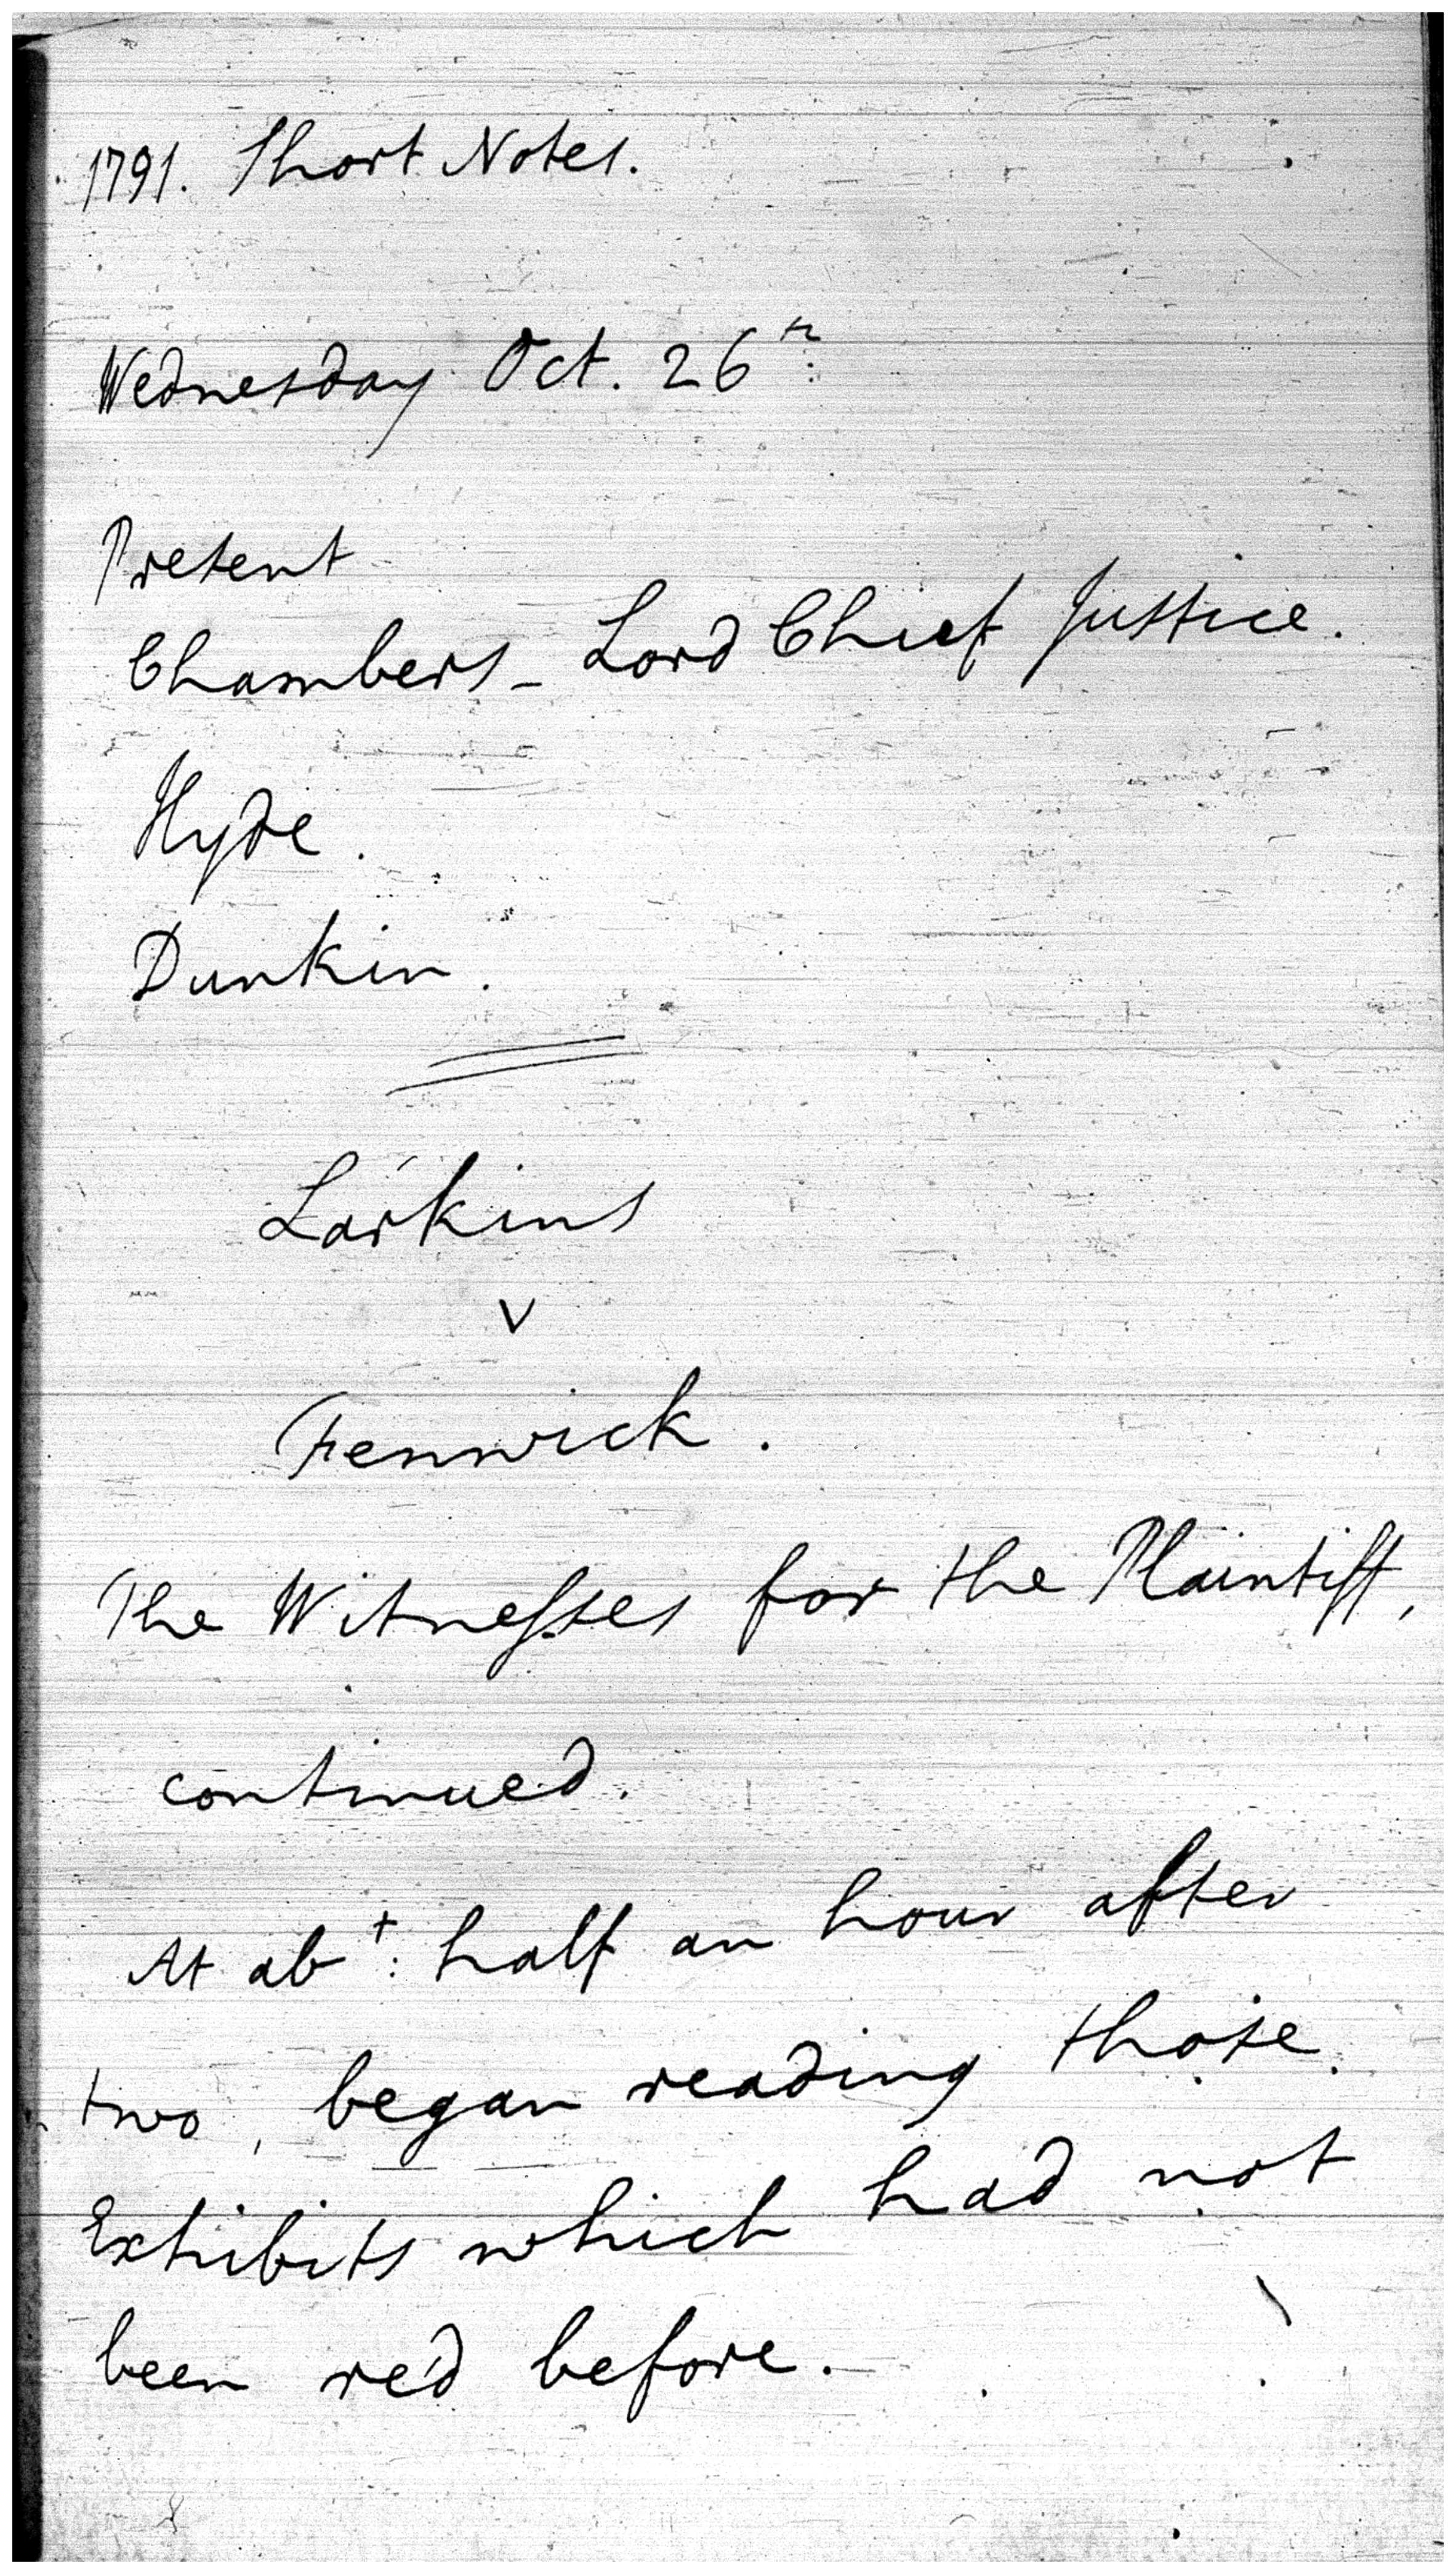 1791. Short Notes.
Wednesday Oct. 26th:
Present
Chambers - Lord Chief Justice.
Hyde.
Dunkin.
Larkins
v
Fenwick.
The Witnesses for the Plaintiff,
continued.
At abt: half an hour after
two, began reading those
Exhibits which had not
been re'd before.